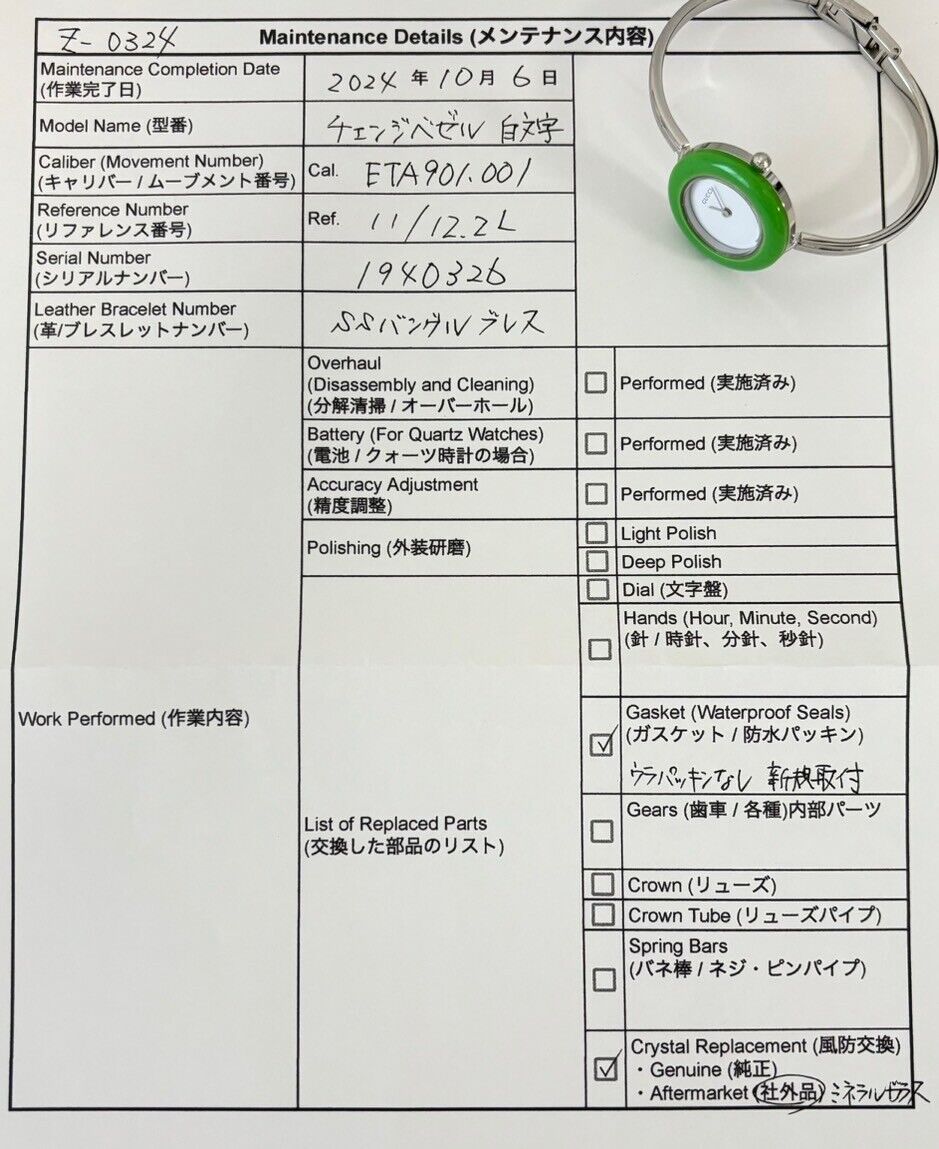 Z-0324
Maintenance Details (メンテナンス内容)
Maintenance Completion Date
(作業完了日)
2024 年 10 月 6 日
Model Name (型番)
チェンジベゼル 白文字
Caliber (Movement Number)
(キャリバー / ムーブメント番号)
Cal. ETA901.001
Reference Number
(リファレンス番号)
Ref. 11/12.2L
Serial Number
(シリアルナンバー)
1940326
Leather Bracelet Number
(革/ブレスレットナンバー)
SSバングルブレス
GUCCI
Work Performed (作業内容)
Overhaul
(Disassembly and Cleaning)
(分解清掃 / オーバーホール)
Performed (実施済み)
Battery (For Quartz Watches)
(電池 / クォーツ時計の場合)
Performed (実施済み)
Accuracy Adjustment
(精度調整)
Performed (実施済み)
Polishing (外装研磨)
Light Polish
Deep Polish
List of Replaced Parts
(交換した部品のリスト)
Dial (文字盤)
Hands (Hour, Minute, Second)
(針 / 時針、分針、秒針)
Gasket (Waterproof Seals)
(ガスケット / 防水パッキン)
ウラパッキンなし 新規取付
Gears (歯車 / 各種)内部パーツ
Crown (リューズ)
Crown Tube (リューズパイプ)
Spring Bars
(バネ棒 / ネジ・ピンパイプ)
Crystal Replacement (風防交換)
・Genuine (純正)
・Aftermarket (社外品) ミネラルガラス